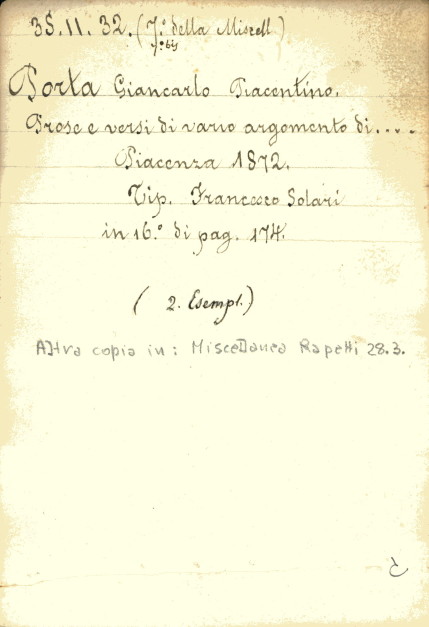 35.11.32. (7.º della Miscell)
7.º bis
Porta Giancarlo Piacentino.
Prose e versi di vario argomento di....
Piacenza 1872.
Tip. Francesco Solari
in 16.º di pag. 174.
(2. Esempl.)
Altra copia in: Miscellanea Rapetti 28.3.